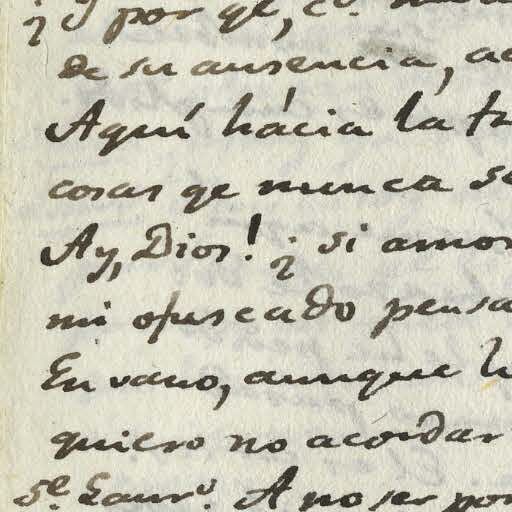 ¿Y por qe,
de su ausencia,
Aquí hácia la
cosas qe nunca
Ay, Dios! ¿ si amor
mi ofuscado pensa
En vano, aunque
quiero no acordar
Se. Laurº. A no ser por